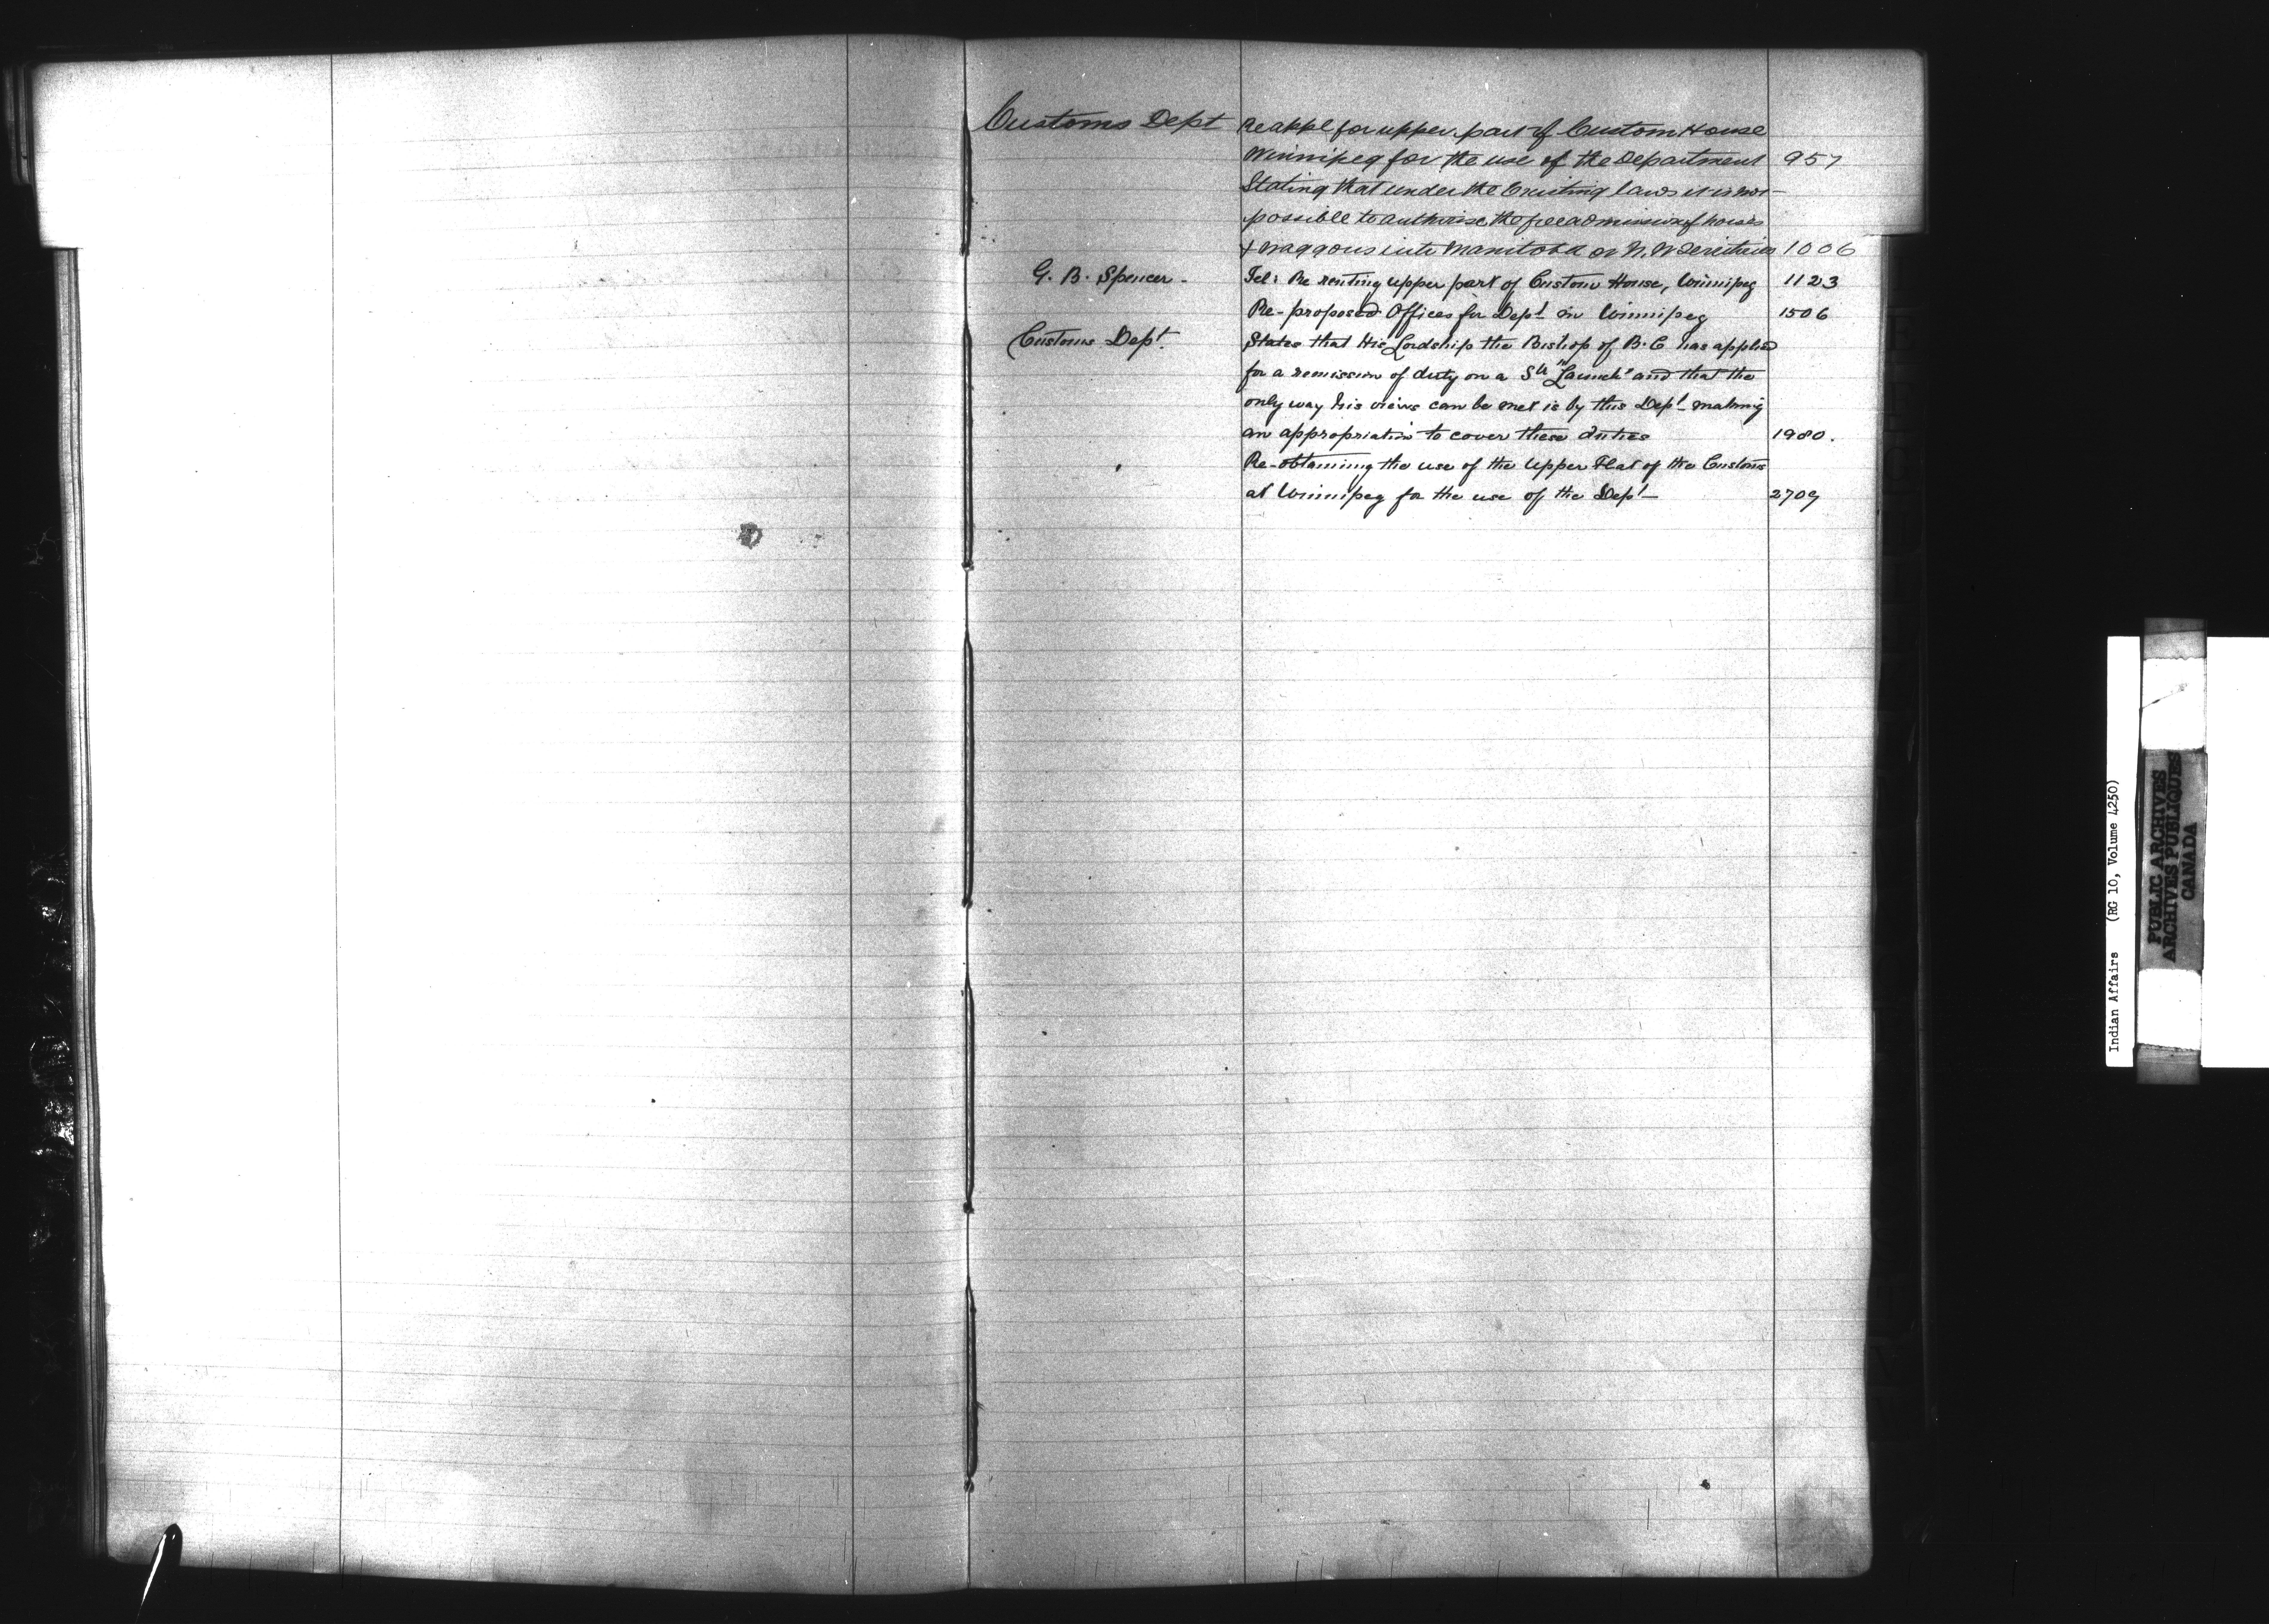 Customs Dept Re appl for upper part of Custom House
Winnipeg for the use of the Department 957
Stating that under the Existing laws it is not
possible to authorise the free admission of horses
& waggons into Manitoba or N.W Territories 1006
G. B. Spencer - Tel: Re renting upper part of Custom House, Winnipeg 1123
Re-proposed Offices for Dept in Winnipeg 1506
Customs Dept. States that His Lordship the Bishop of B.C has applied
for a remission of duty on a St "Launch" and that the
only way his views can be met is by this Dept making
an appropriation to cover these duties 1980.
Re-obtaining the use of the Upper Flat of the Customs
at Winnipeg for the use of the Dept 2709
Indian Affairs (RG 10, Volume 4250)
PUBLIC ARCHIVES
ARCHIVES PUBLIQUES
CANADA